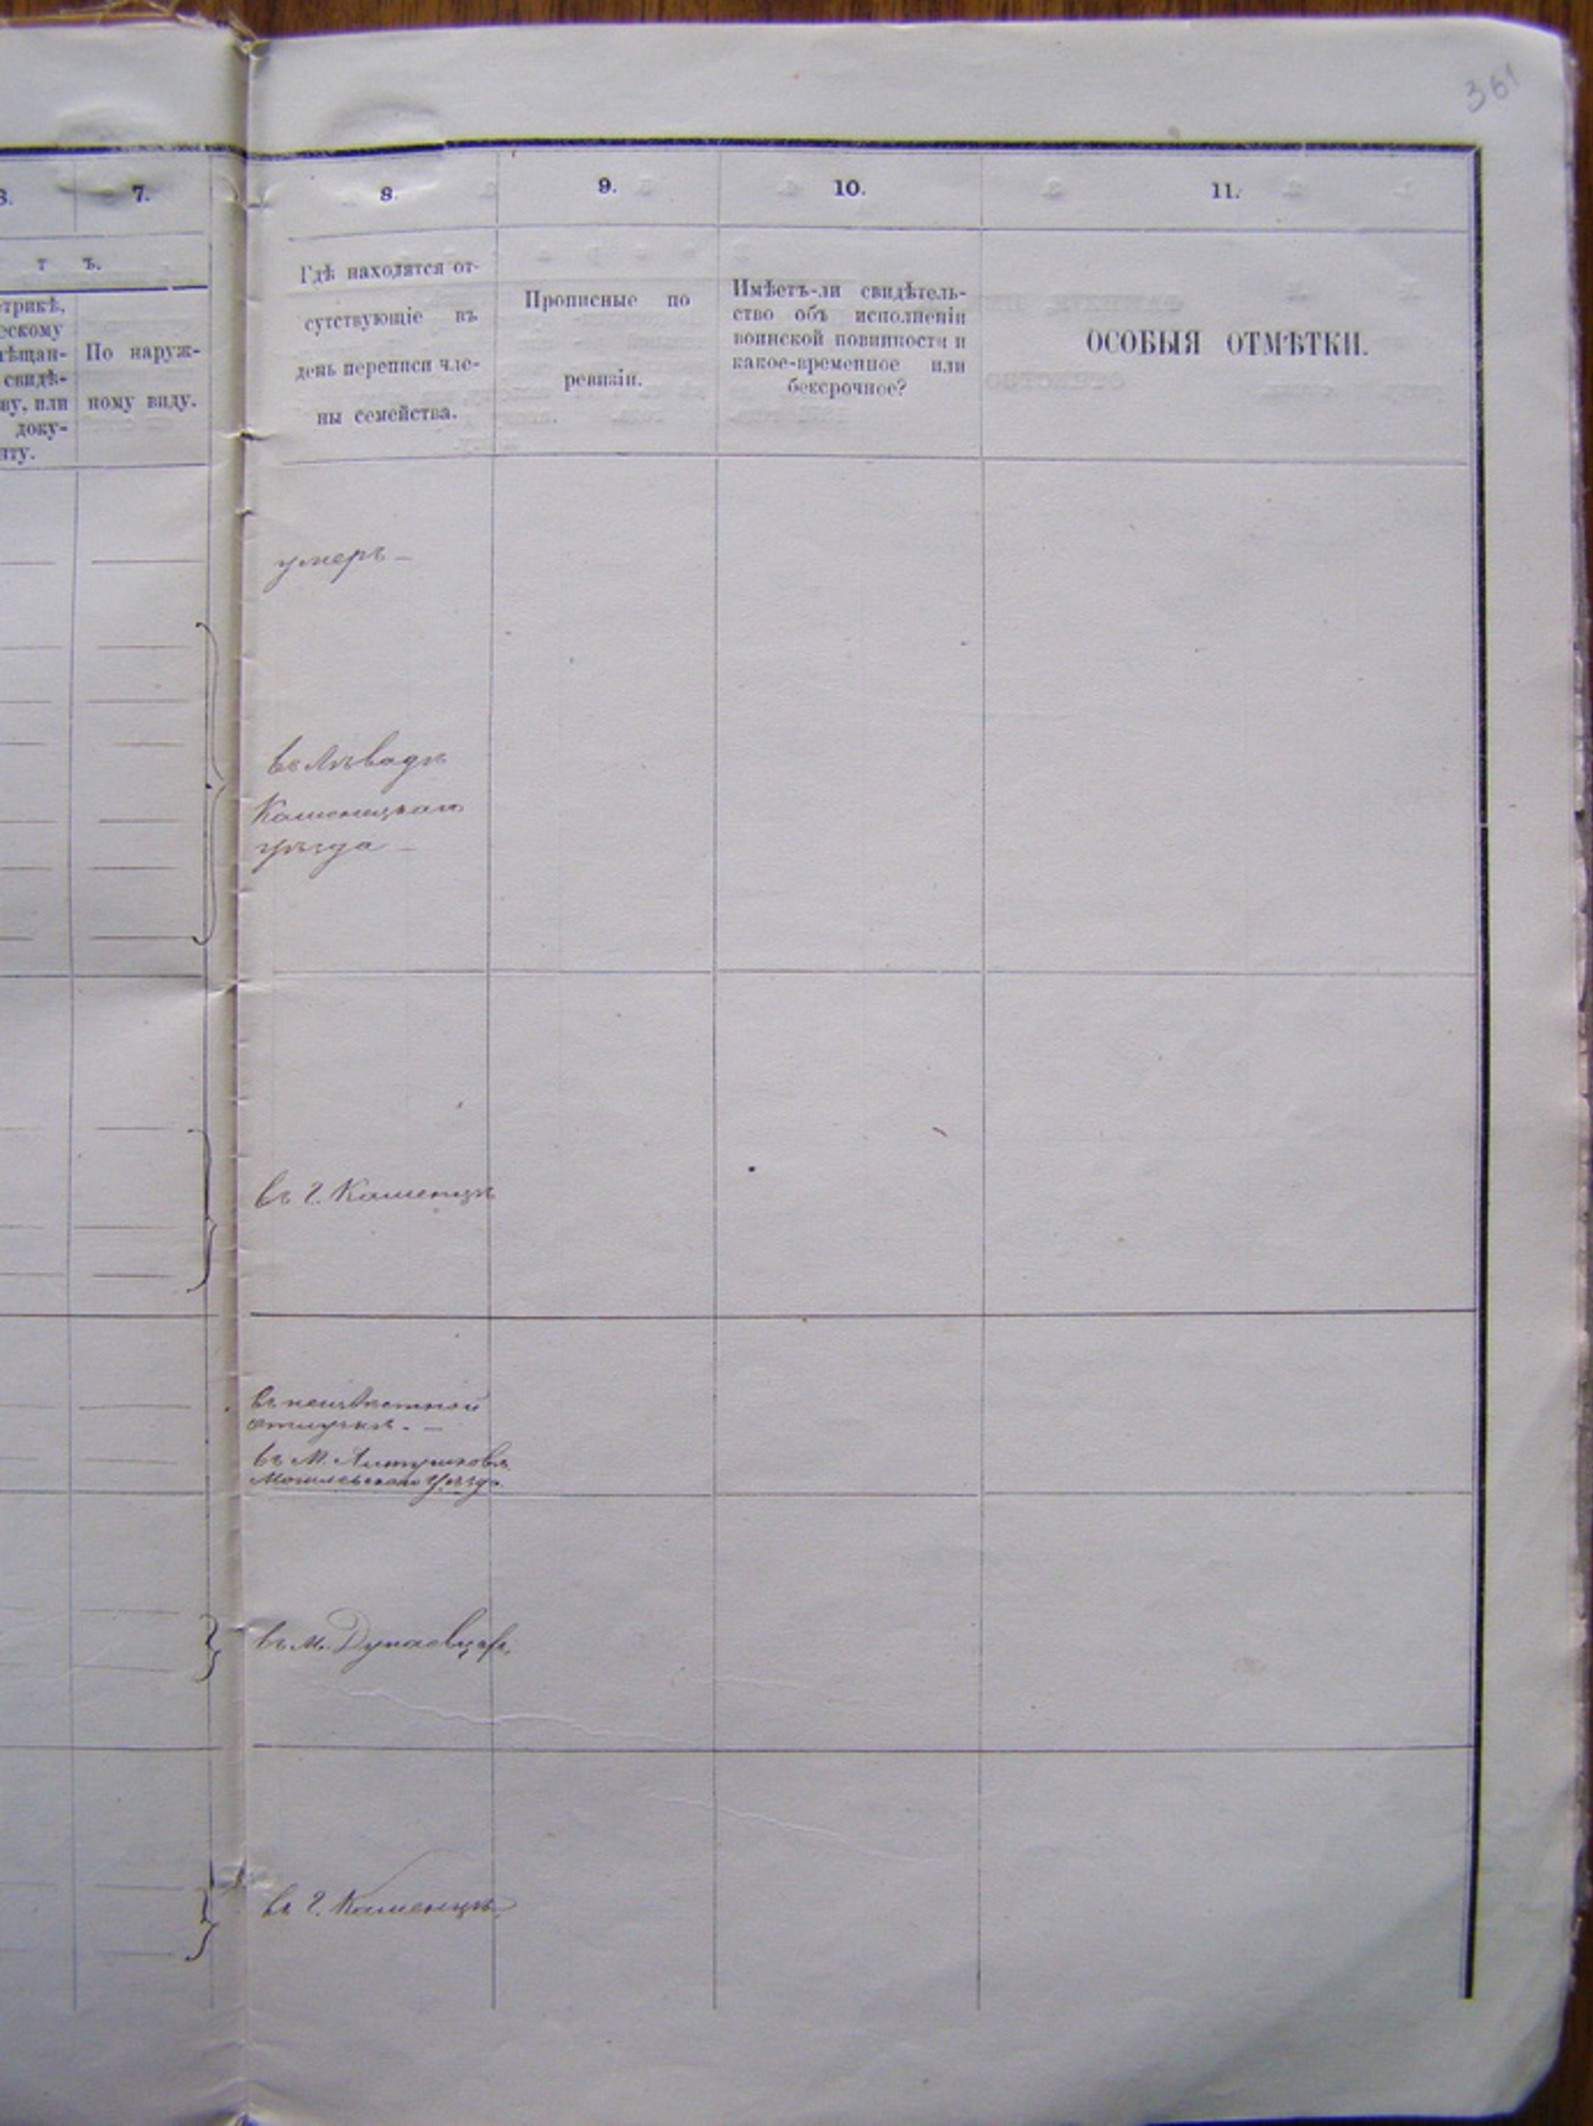 361
7.
8.
9.
10.
11.
т ъ.
трикѣ,
ескому
ѣщан-
свидѣ-
ву, или
доку-
нту.
По наруж-
ному виду.
Гдѣ находятся от-
сутствующіе въ
день переписи чле-
ны семейства.
Прописные по
ревизіи.
Имѣетъ-ли свидѣтель-
ство объ исполненіи
воинской повинности и
какое-временное или
безсрочное?
ОСОБЫЯ ОТМѢТКИ.
умеръ —
въ
Каменецкаго
уѣзда —
въ г. Каменцѣ
въ неизвѣстной
отлучкѣ. —
въ М.
Могилевскаго уѣзда.
въ м. Дунаевцахъ
въ г. Каменцѣ